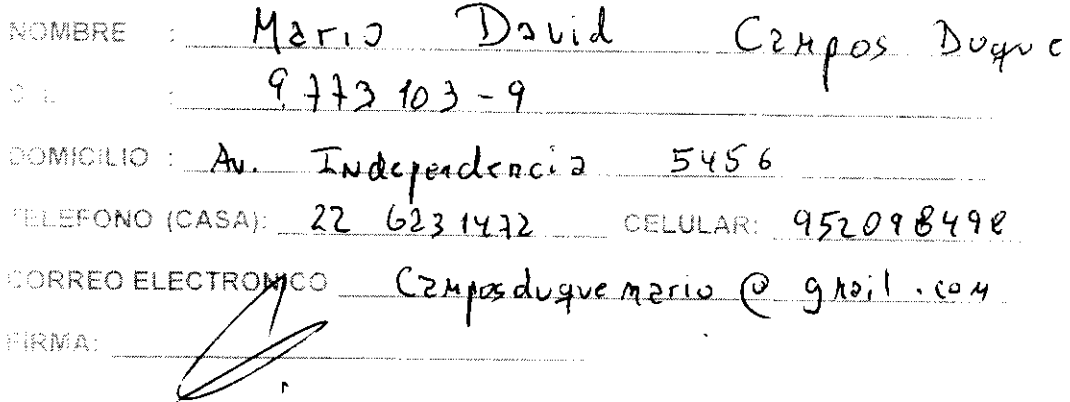 NOMBRE : Mario David Campos Duque
C.I. : 9.773 103-9
DOMICILIO : Av. Independencia 5456
TELEFONO (CASA): 22 6231472 CELULAR: 952098498
CORREO ELECTRONICO Camposduquemario@gmail.com
FIRMA: